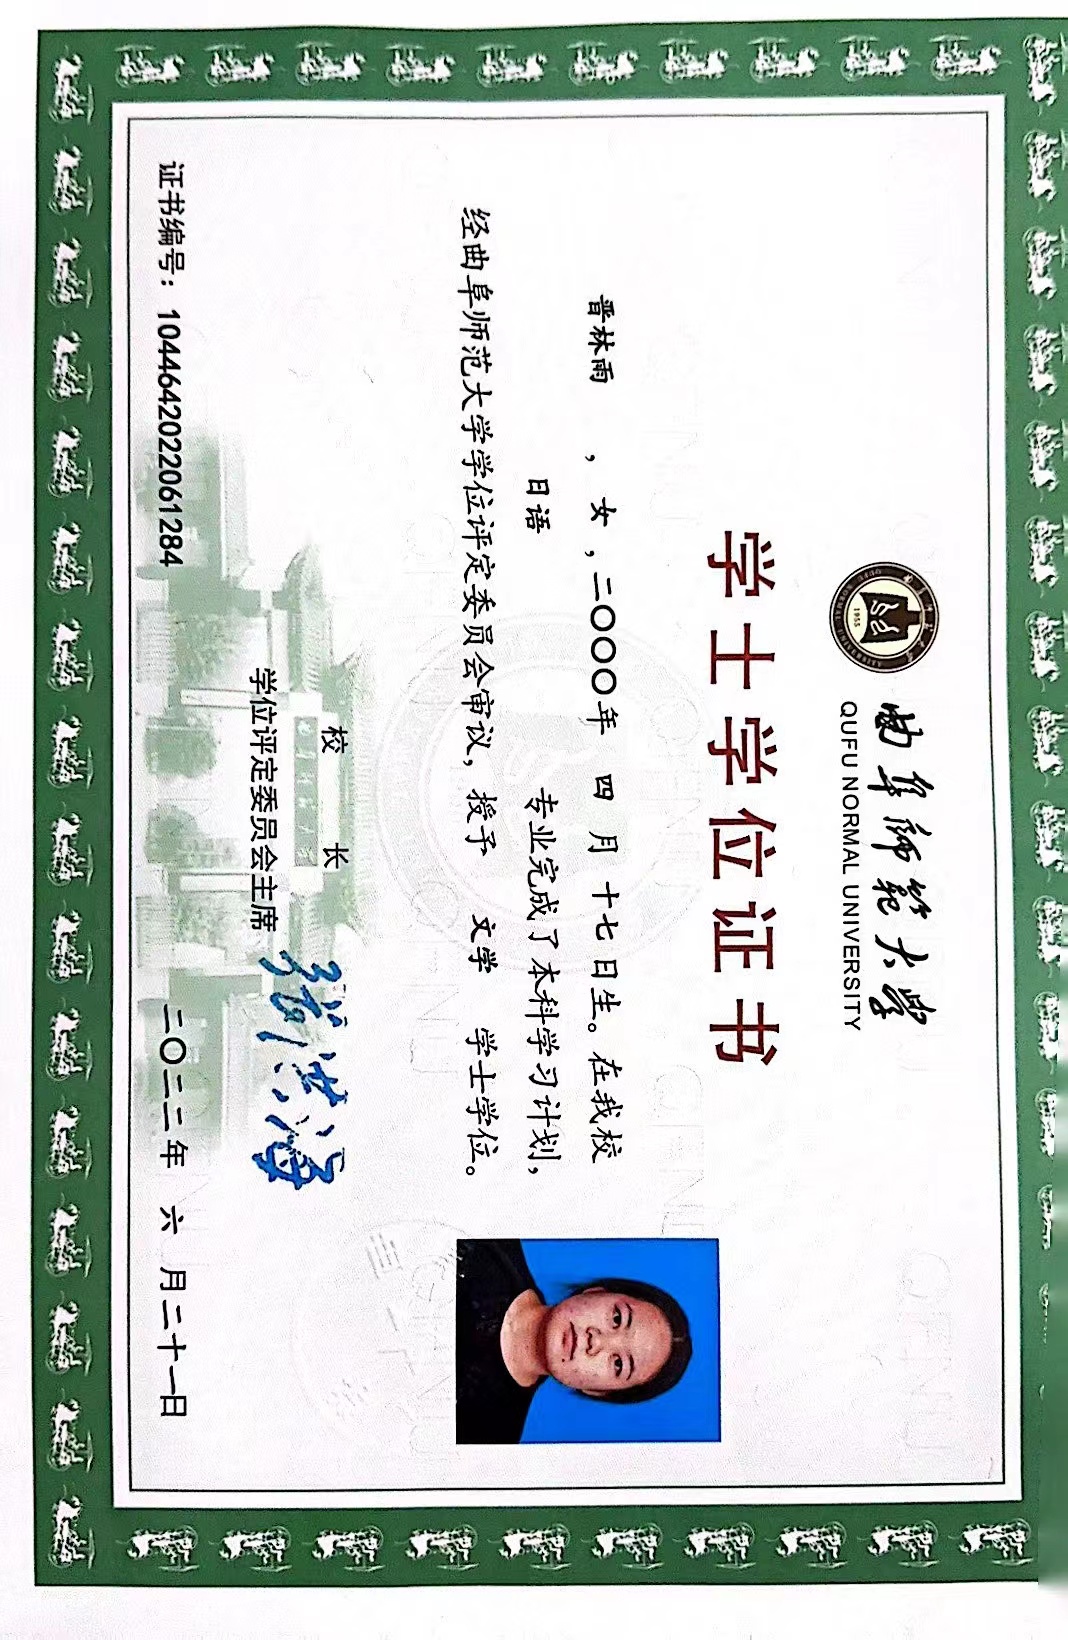 曲阜师范大学
QUFU NORMAL UNIVERSITY
学士学位证书
晋林雨，女，二〇〇〇年 四 月 十七日生。在我校
日语 专业完成了本科学习计划，
经曲阜师范大学学位评定委员会审议，授予 文学 学士学位。
校 长
学位评定委员会主席
证书编号：1044642022061284
二〇二二年 六 月二十一日